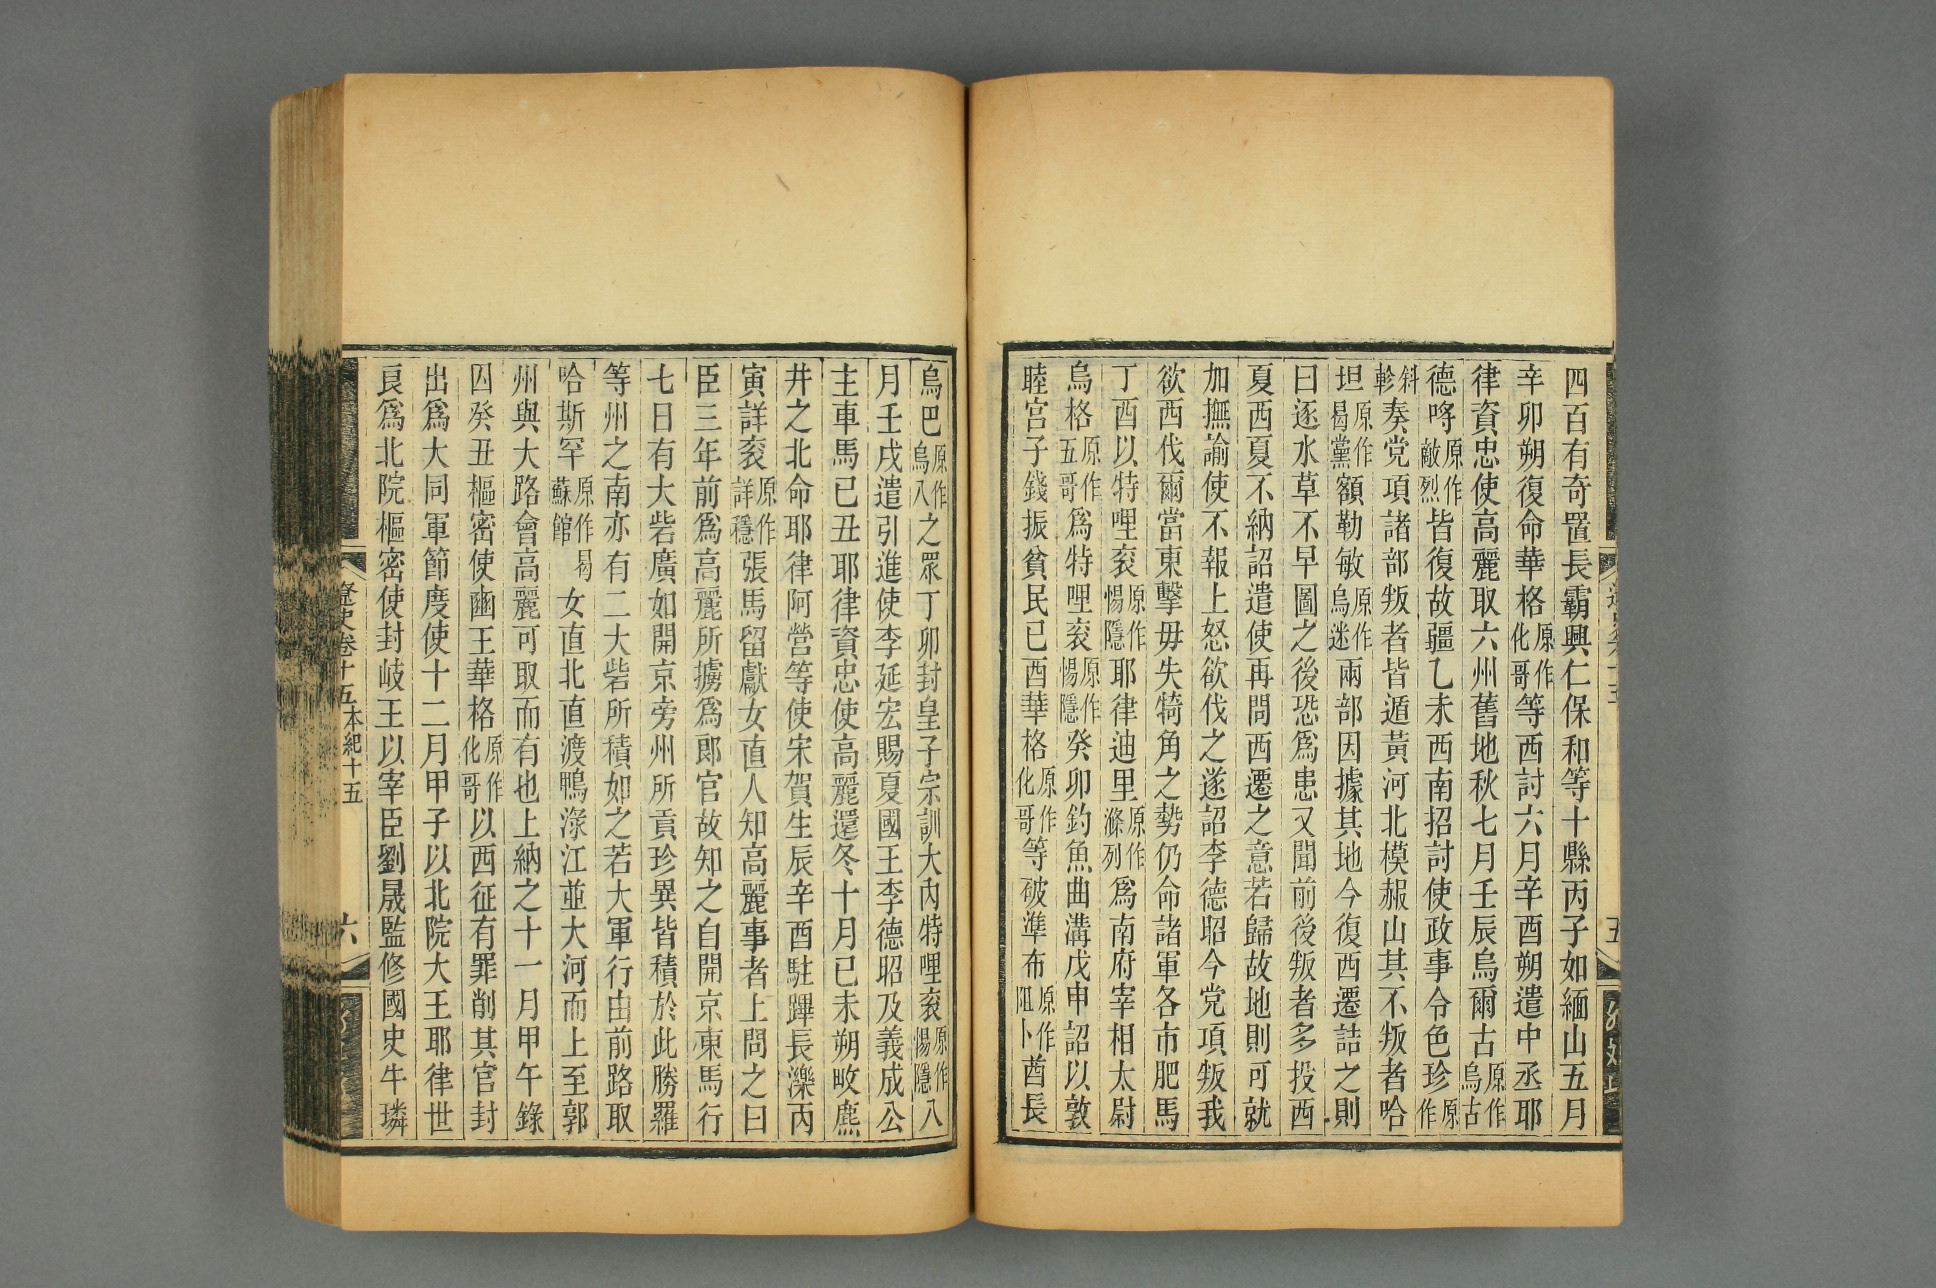 四百有奇置長霸興仁保和等十縣丙子如緬山五月
辛卯朔復命華格原作化哥等西討六月辛酉朔遣中丞耶
律資忠使高麗取六州舊地秋七月壬辰烏爾古原作烏古
德哷原作敵烈皆復故疆乙未西南招討使政事令色珍原作
斜軫奏党項諸部叛者皆遁黃河北模赧山其不叛者哈
坦原作曷黨額勒敏原作烏迷兩部因據其地今復西遷詰之則
曰逐水草不早圖之後恐爲患又聞前後叛者多投西
夏西夏不納詔遣使再問西遷之意若歸故地則可就
加撫諭使不報上怒欲伐之遂詔李德昭今党項叛我
欲西伐爾當東擊毋失犄角之勢仍命諸軍各市肥馬
丁酉以特哩袞原作惕隱耶律迪里原作滌列爲南府宰相太尉
烏格原作五哥爲特哩袞原作惕隱癸卯釣魚曲溝戊申詔以敦
睦宮子錢振貧民己酉華格原作化哥等破準布原作阻卜酋長
烏巴原作烏八之眾丁卯封皇子宗訓大內特哩袞原作惕隱八
月壬戌遣引進使李延宏賜夏國王李德昭及義成公
主車馬己丑耶律資忠使高麗還冬十月己未朔畋麃
井之北命耶律阿營等使宋賀生辰辛酉駐蹕長濼丙
寅詳袞原作詳穩張馬留獻女直人知高麗事者上問之曰
臣三年前爲高麗所擄爲郎官故知之自開京東馬行
七日有大砦廣如開京旁州所貢珍異皆積於此勝羅
等州之南亦有二大砦所積如之若大軍行由前路取
哈斯罕原作曷蘇館女直北直渡鴨淥江並大河而上至郭
州與大路會高麗可取而有也上納之十一月甲午錄
囚癸丑樞密使豳王華格原作化哥以西征有罪削其官封
出爲大同軍節度使十二月甲子以北院大王耶律世
良爲北院樞密使封岐王以宰臣劉晟監修國史牛璘
遼史卷十五 本紀十五
六